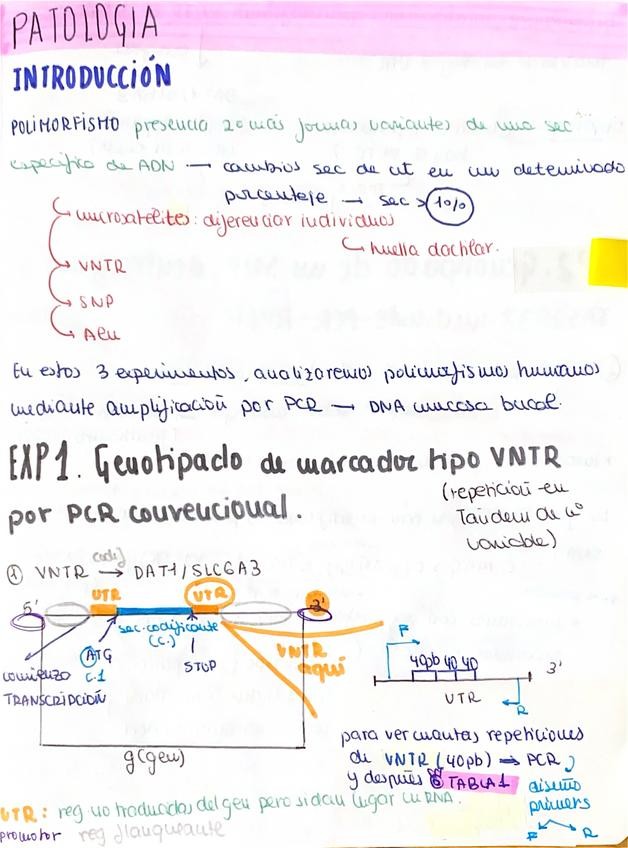 PATOLOGIA
INTRODUCCIÓN
POLIMORFISMO presencia 2 o más formas variantes de una sec
específica de ADN → cambios sec de nt en un determinado
porcentaje → sec > 1%
microsatélites: diferenciar individuos
↳ huella dactilar.
VNTR
SNP
Alu
En estos 3 experimentos, analizaremos polimorfismos humanos
mediante amplificación por PCR → DNA mucosa bucal.
EXP 1. Genotipado de marcador tipo VNTR
por PCR convencional.
(repetición en
Tandem de nº
variable)
① VNTR → DAT1/SLC6A3
5' UTR UTR 3'
sec. codificante
(c.)
ATG
c.1
STOP
VNTR
aquí
comienzo
TRANSCRIPCIÓN
g (gen)
F
40pb 40 40
3'
UTR
R
para ver cuantas repeticiones
de VNTR (40pb) ⇒ PCR
y después TABLA 1
diseño
primers
F R
UTR: reg no traducidas del gen pero si dan lugar a RNA.
promotor reg flanqueante